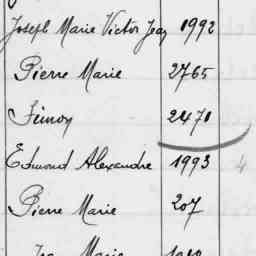 Joseph Marie Victor Jean 1992
Pierre Marie 2765
Simon 2471
Edmond Alexandre 1993 4
Pierre Marie 207
Marie